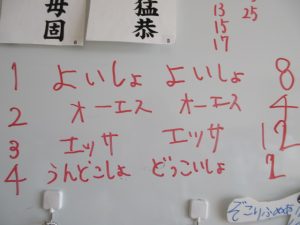 毋固
猛恭
13 25
15
17
1 よいしょ よいしょ 8
2 オーエス オーエス 4
3 エッサ エッサ 12
4 うんどこしょ どっこいしょ 2